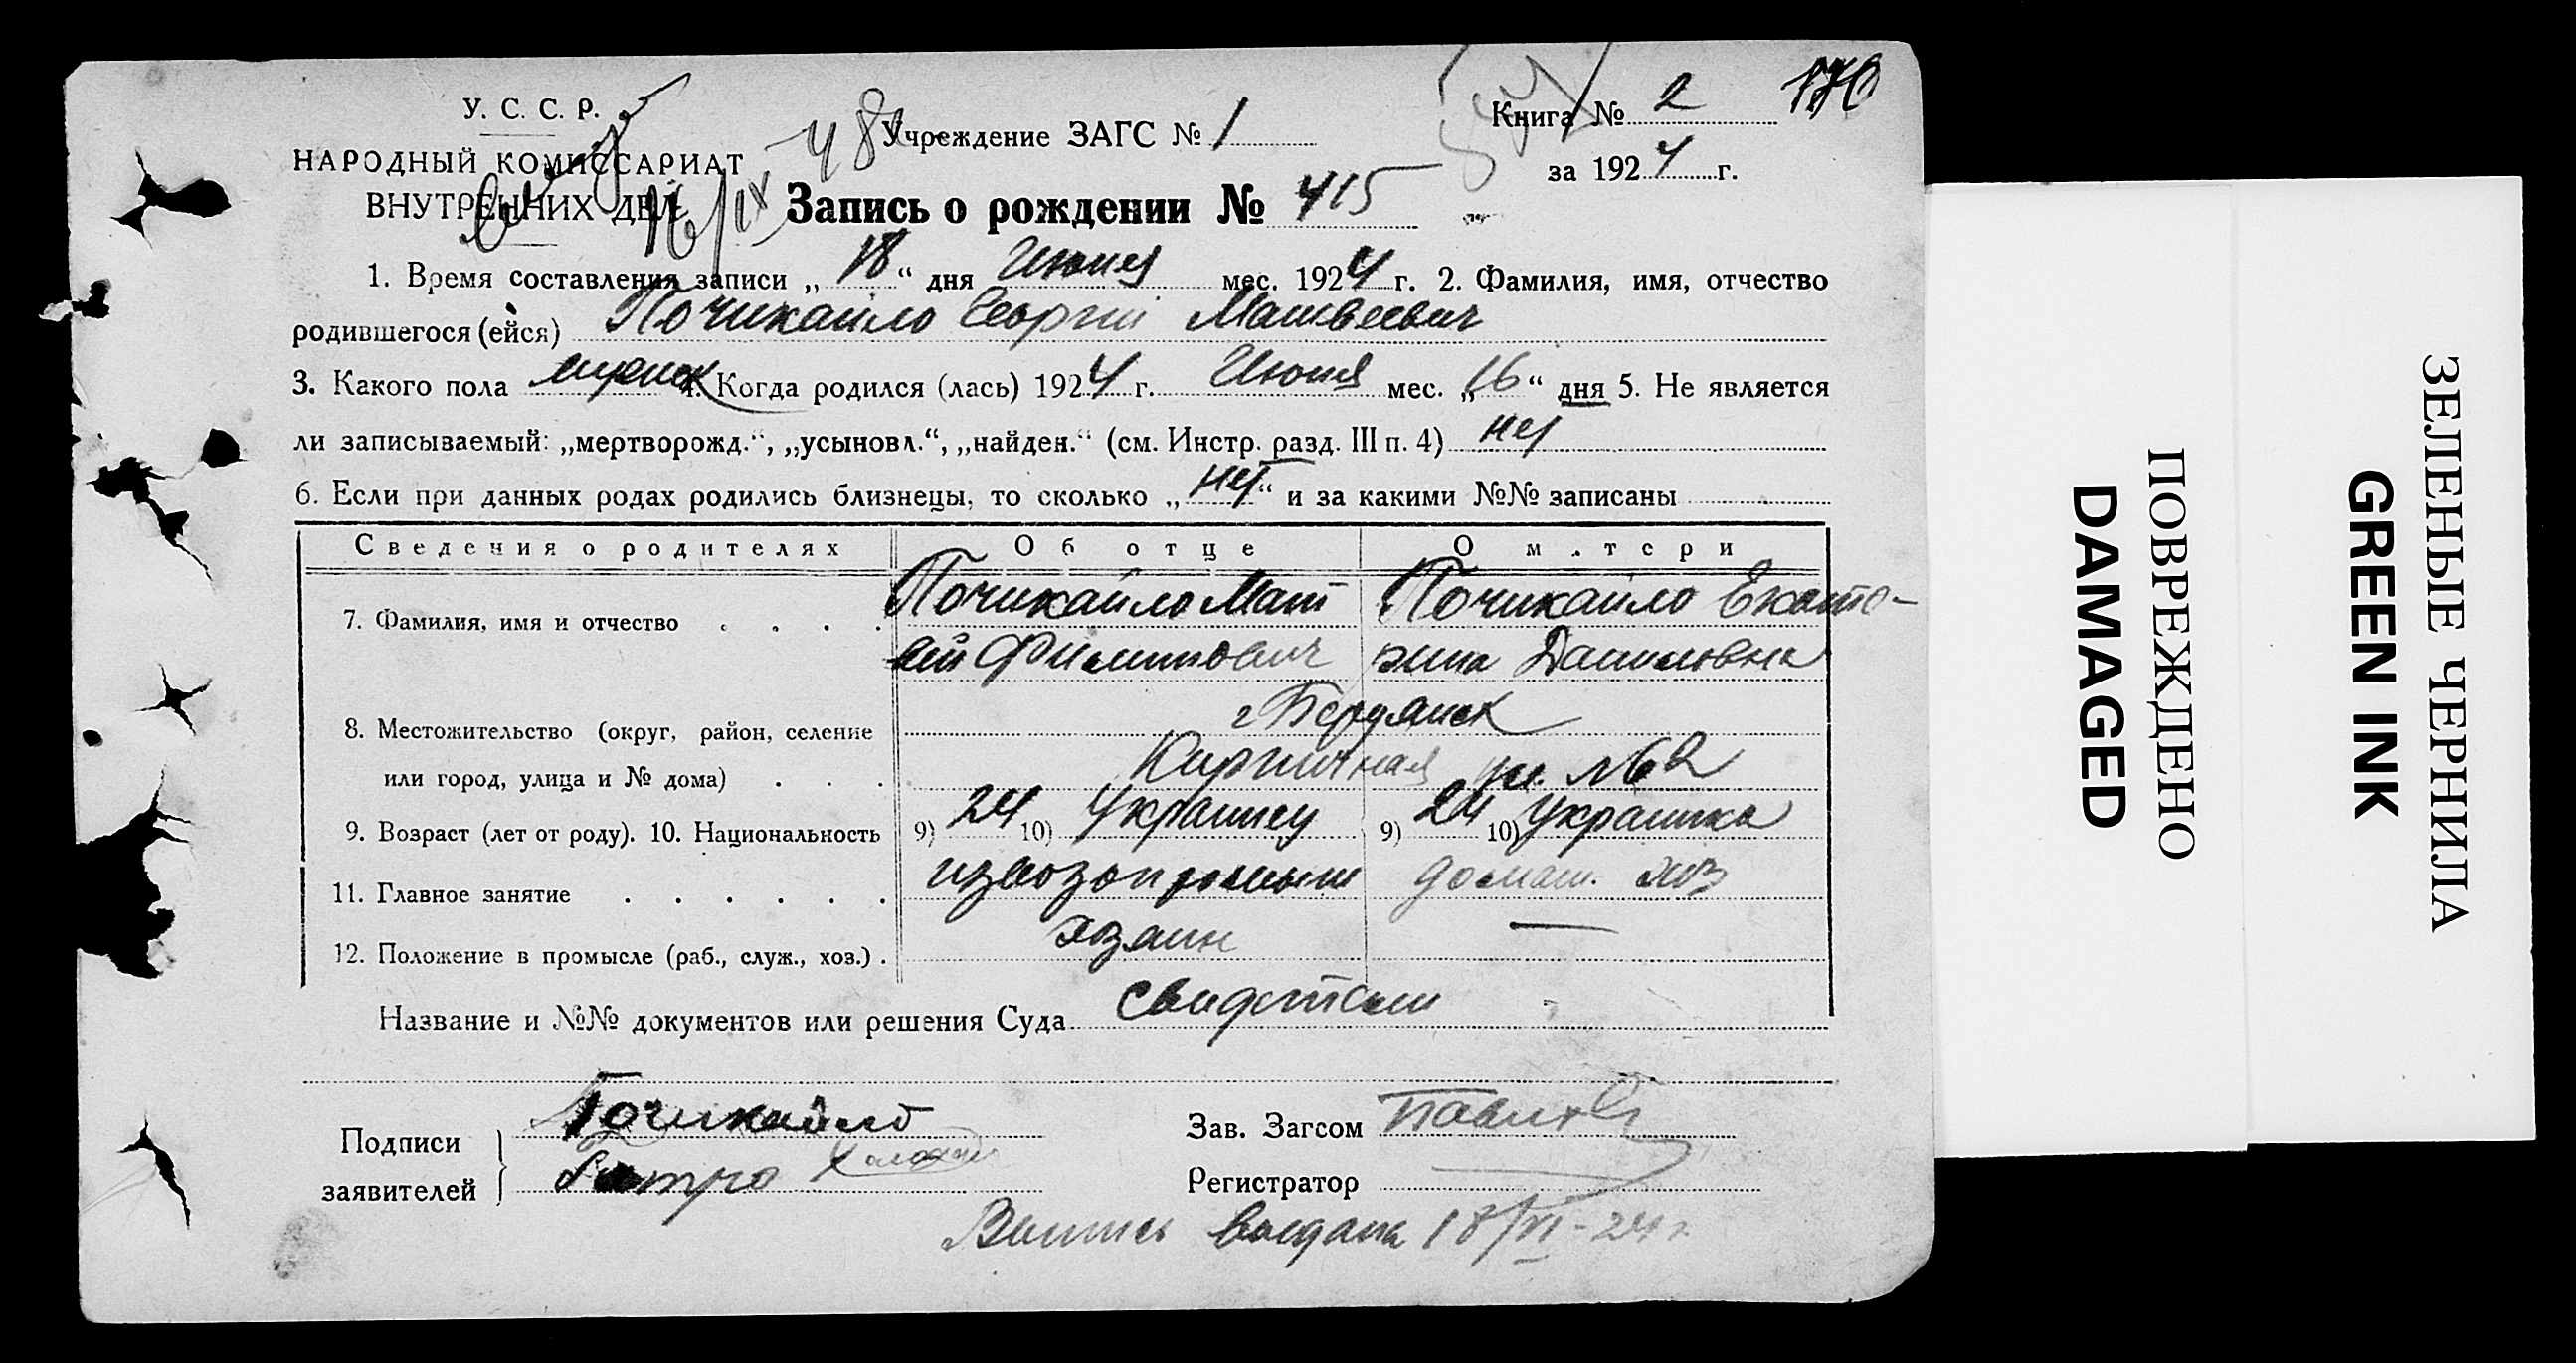 У. С. С. Р.
НАРОДНЫЙ КОМИССАРИАТ
ВНУТРЕННИХ ДЕЛ
Учреждение ЗАГС № 1
Книга № 2 176
за 1924 г.
Запись о рождении № 415
1. Время составления записи „18“ дня Июня мес. 1924 г. 2. Фамилия, имя, отчество
родившегося (ейся) Почикайло Георгий Матвеевич
3. Какого пола мужск 4. Когда родился (лась) 1924 г. Июня мес. „16“ дня 5. Не является
ли записываемый: „мертворожд.“, „усыновл.“, „найден.“ (см. Инстр. разд. III п. 4) нет
6. Если при данных родах родились близнецы, то сколько „нет“ и за какими №№ записаны
Сведения о родителях Об отце О матери
7. Фамилия, имя и отчество Почикайло Мат Почикайло Екате-
вей Филиппович рина Даниловна
8. Местожительство (округ, район, селение г Бердянск
или город, улица и № дома) Кирпичная ул. № 62
9. Возраст (лет от роду). 10. Национальность 9) 24 10) Украинец 9) 24 10) Украинка
11. Главное занятие извозопромыш домаш. хоз
12. Положение в промысле (раб., служ., хоз.) хозяин —
Название и №№ документов или решения Суда свидетели
Подписи заявителей
Почикайло
Зав. Загсом
Регистратор
Выпись выдана 18/VI-24 г.
ПОВРЕЖДЕНО
DAMAGED
ЗЕЛЕНЫЕ ЧЕРНИЛА
GREEN INK